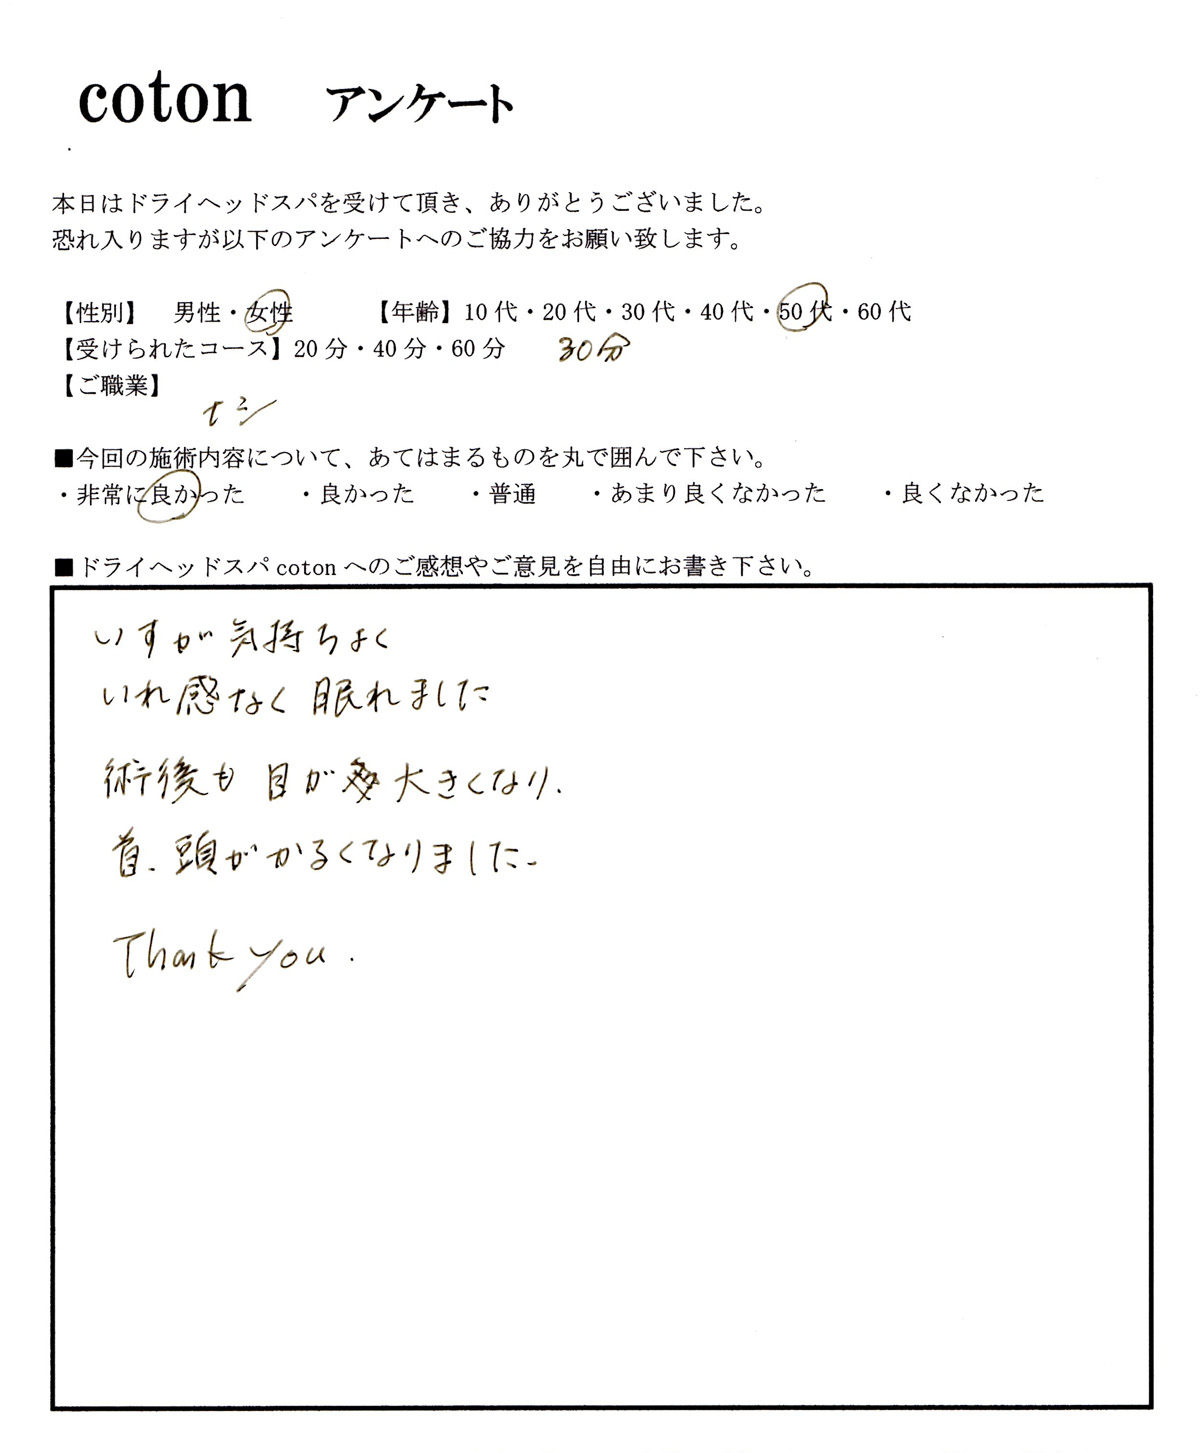 coton アンケート
本日はドライヘッドスパを受けて頂き、ありがとうございました。
恐れ入りますが以下のアンケートへのご協力をお願い致します。
【性別】 男性・女性 【年齢】10代・20代・30代・40代・50代・60代
【受けられたコース】20分・40分・60分 30分
【ご職業】
ナシ
■今回の施術内容について、あてはまるものを丸で囲んで下さい。
・非常に良かった ・良かった ・普通 ・あまり良くなかった ・良くなかった
■ドライヘッドスパcotonへのご感想やご意見を自由にお書き下さい。
いすが気持ちよく
いれ感なく眠れました
術後も目が大きくなり、
首、頭がかるくなりました。
Thank you.